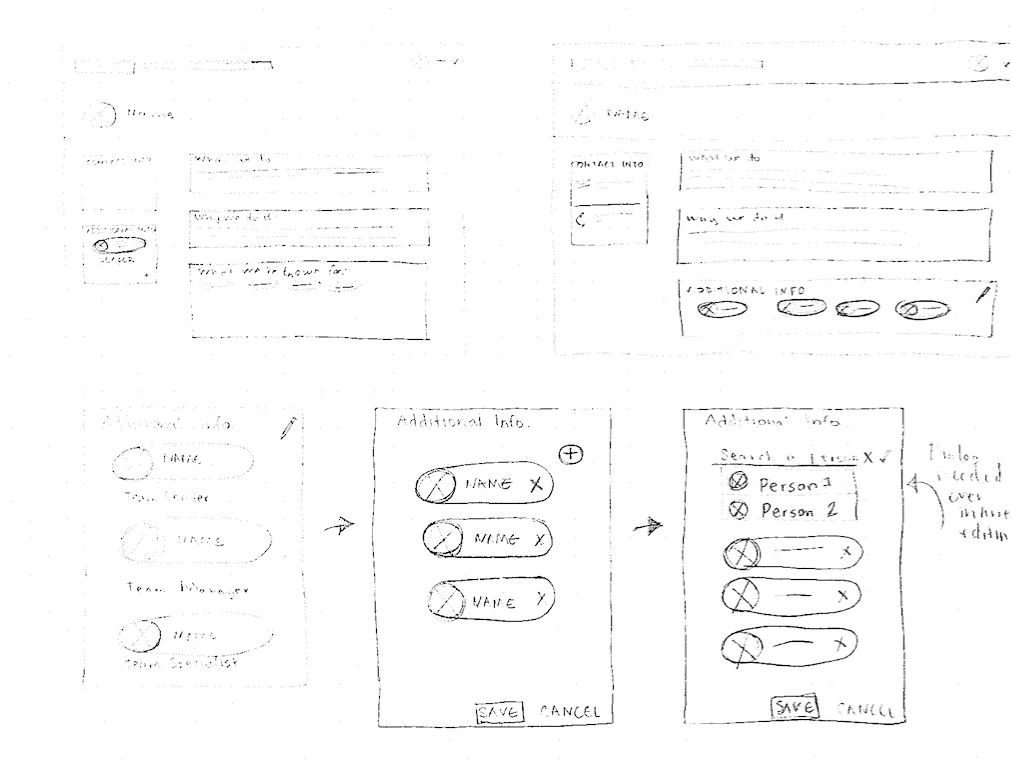 Name
What we do
Why we do it
What we're known for:
LEADER
NAME
CONTACT INFO
What we do
Why we do it
ADDITIONAL INFO
Additional Info.
NAME
Team Leader
NAME
Team Manager
NAME
Team Specialist
Additional Info.
NAME X
NAME X
NAME X
SAVE CANCEL
Additional Info.
Search a person X
Person 1
Person 2
X
X
X
SAVE CANCEL
Dialog
needed
over
inline